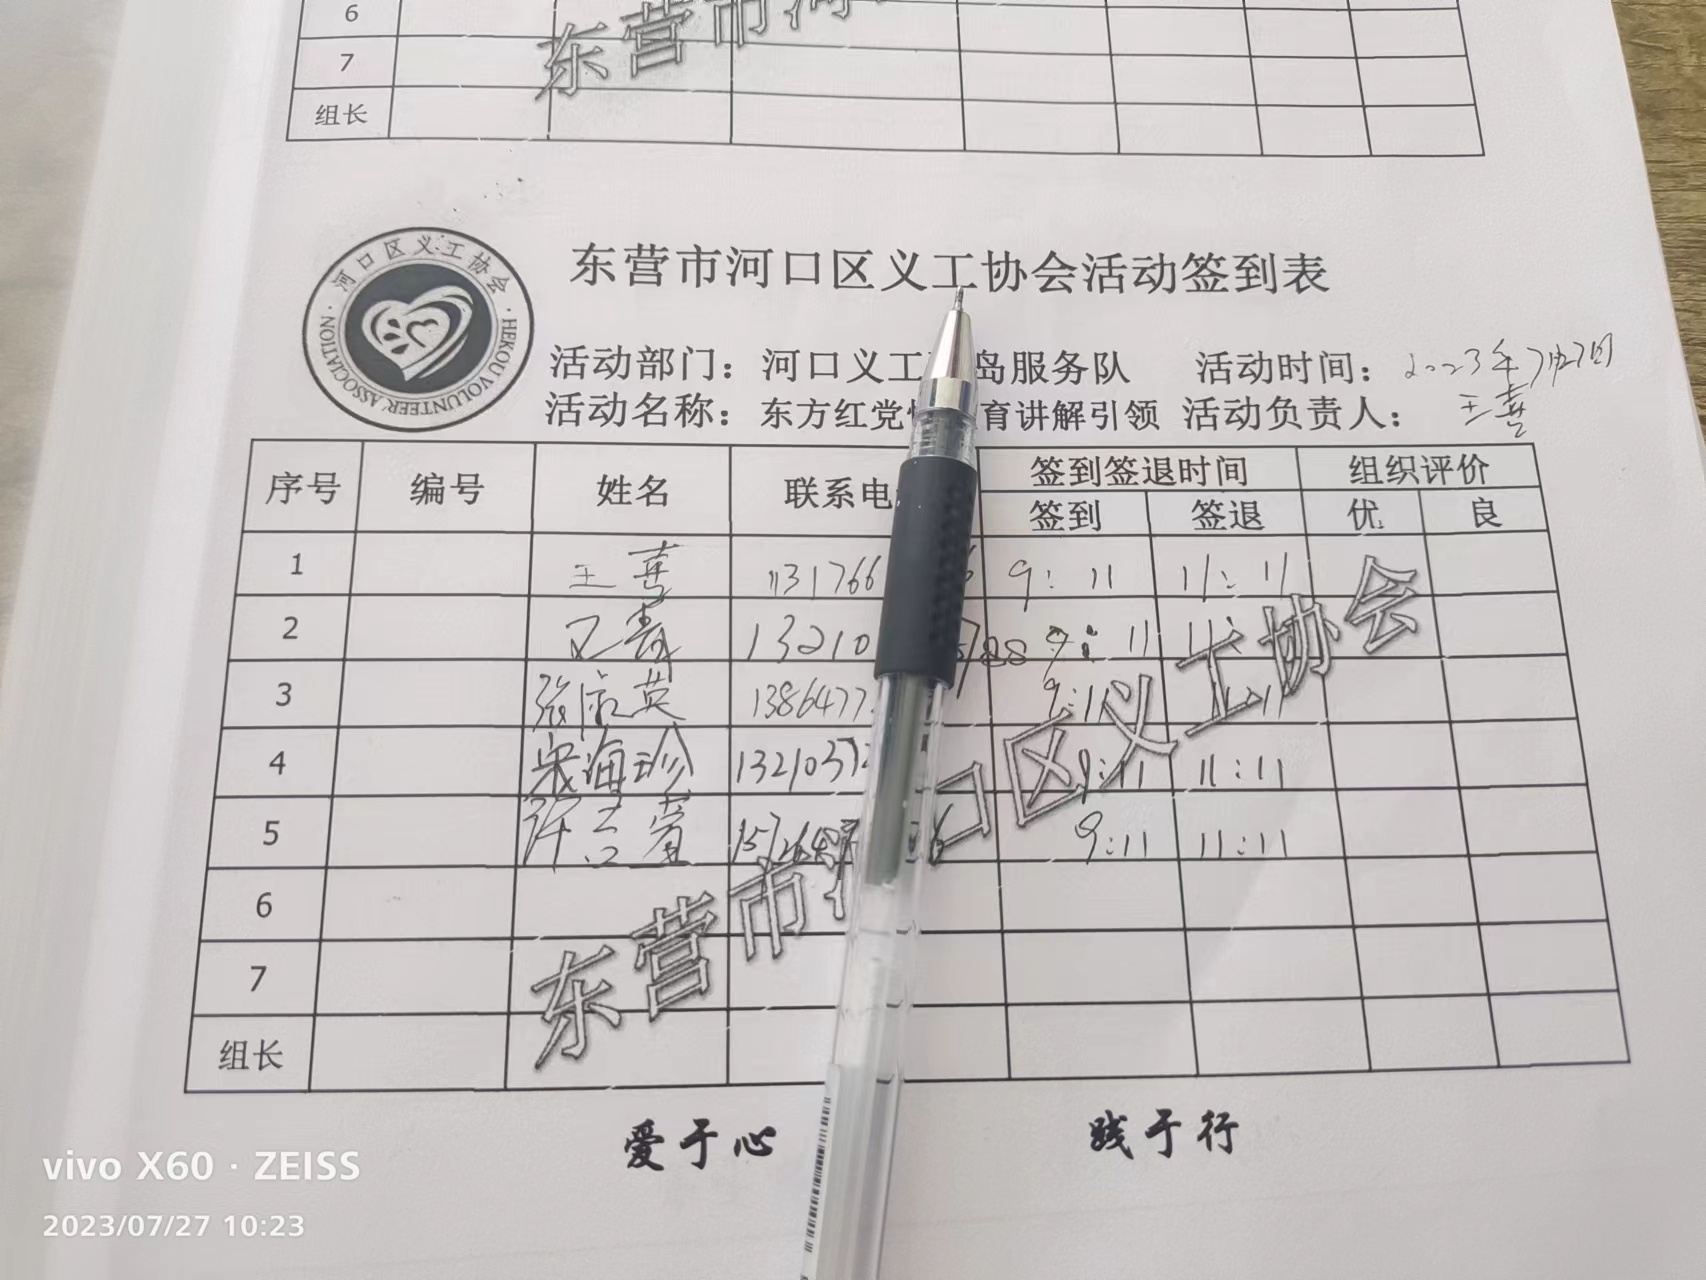 6
7
组长
东营市河
东营市河口区义工协会活动签到表
河口区义工协会
HEKOU VOLUNTEER ASSOCIATION
活动部门：河口义工 岛服务队 活动时间：2023年7月27日
活动名称：东方红党 育讲解引领 活动负责人：王喜
序号 编号 姓名 联系电 签到签退时间 组织评价
签到 签退 优 良
1 王喜 131766 6 9:11 11:11
2 13210 788 9:11 11:
3 张 英 1386477 9:11 11:11
4 宋海珍 1321037 9:11 11:11
5 许 15726 6 9:11 11:11
6
7
组长
东营市河口区义工协会
爱于心 践于行
vivo X60 · ZEISS
2023/07/27 10:23